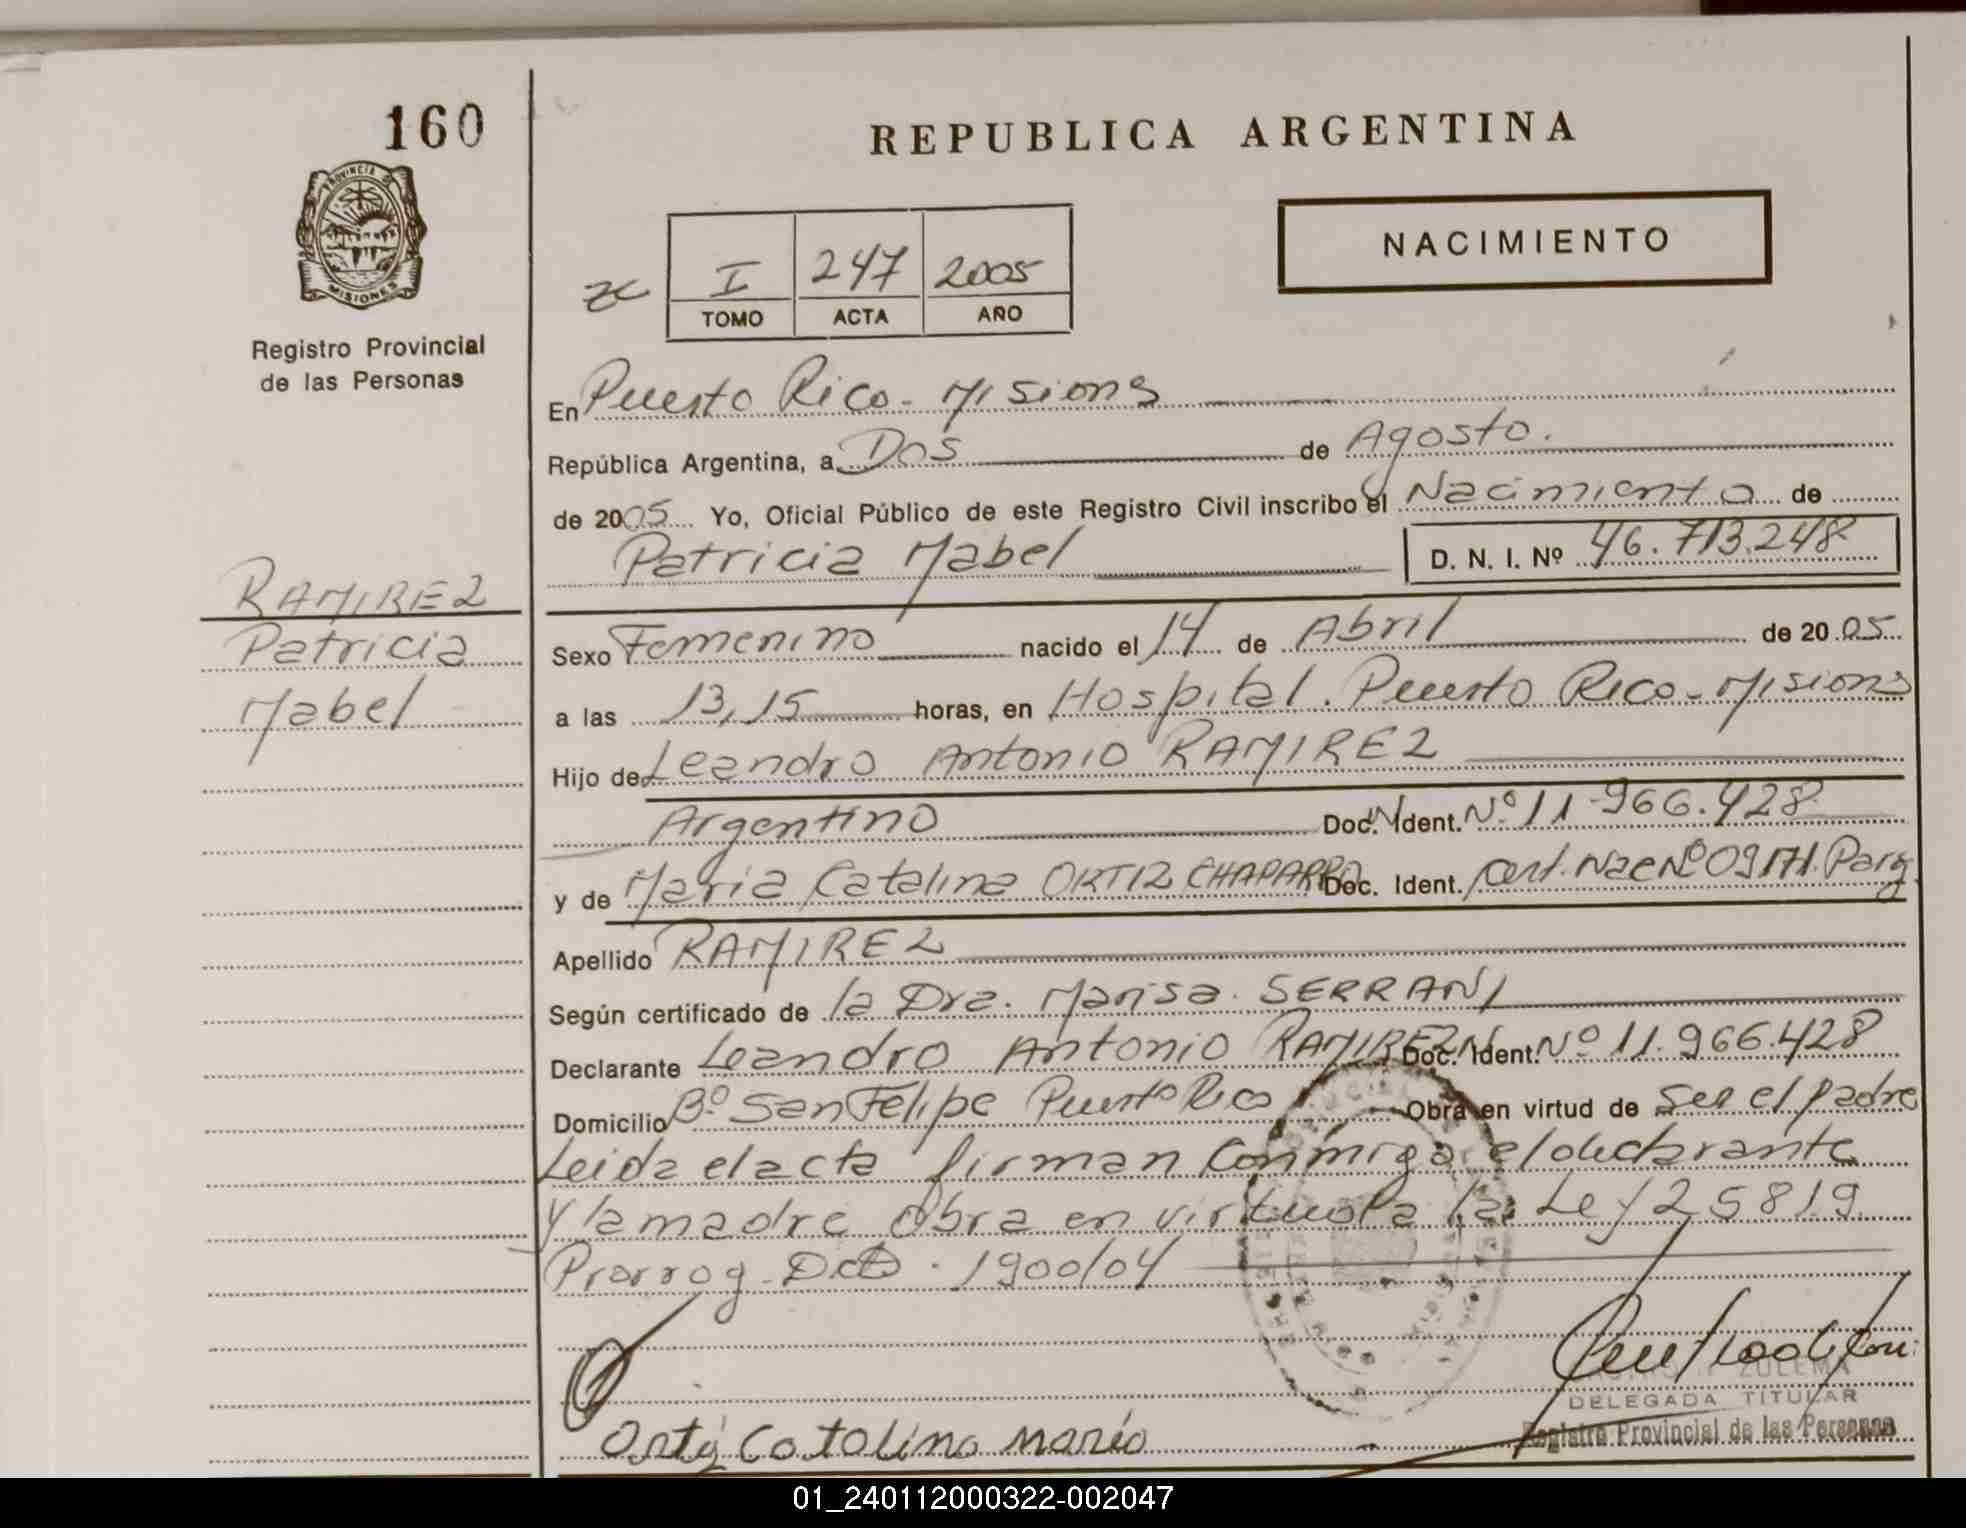 160
PROVINCIA DE
MISIONES
Registro Provincial
de las Personas
RAMIREZ
Patricia
Mabel
REPUBLICA ARGENTINA
NACIMIENTO
zc
I 247 2005
TOMO ACTA AÑO
En Puerto Rico - Misions
República Argentina, a Dos de Agosto.
de 2005 Yo, Oficial Público de este Registro Civil inscribo el Nacimiento de
Patricia Mabel D. N. I. Nº 46.713.248
Sexo Femenino nacido el 14 de Abril de 2005
a las 13,15 horas, en Hospital. Puerto Rico - Misions
Hijo de Leandro Antonio RAMIREZ
Argentino Doc. Ident. Nº 11.966.428
y de Maria Catalina ORTIZ CHAPARRO Doc. Ident. Cert. Nac Nº 09171. Parg
Apellido RAMIREZ
Según certificado de la Dra. Marisa. SERRANI
Declarante Leandro Antonio RAMIREZ Doc. Ident. Nº 11.966.428
Domicilio Bº San Felipe Puerto Rico Obra en virtud de ser el padre
Leida el acta firman conmigo el declarante
y la madre Obra en virtud a la Ley 25819
Prorrog. Dcto. 1900/04
Ortiz Catalina Maria
ZULEMA
DELEGADA TITULAR
Registro Provincial de las Personas
01_240112000322-002047